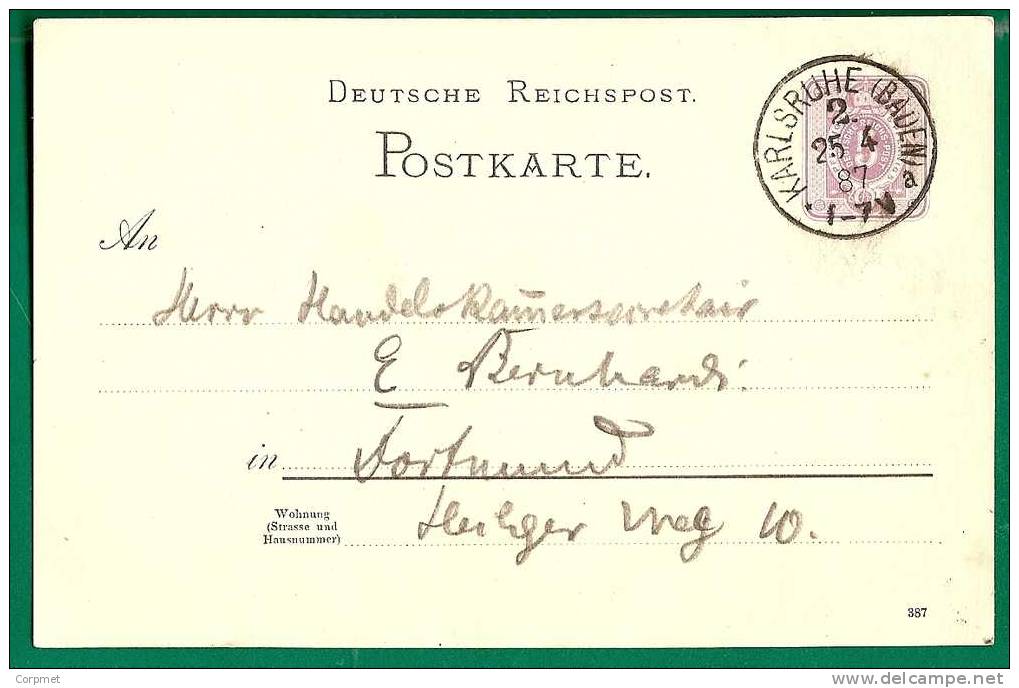 DEUTSCHE REICHSPOST.
POSTKARTE.
KARLSRUHE (BADEN)
2.
25 4
87
1-7 V
* a
An
Herrn Handelskam̅ersecretair
E Bernhardi.
in Dortmund
Wohnung
(Strasse und
Hausnummer)
Heiliger Weg 10.
387
Corpmet
www.delcampe.net